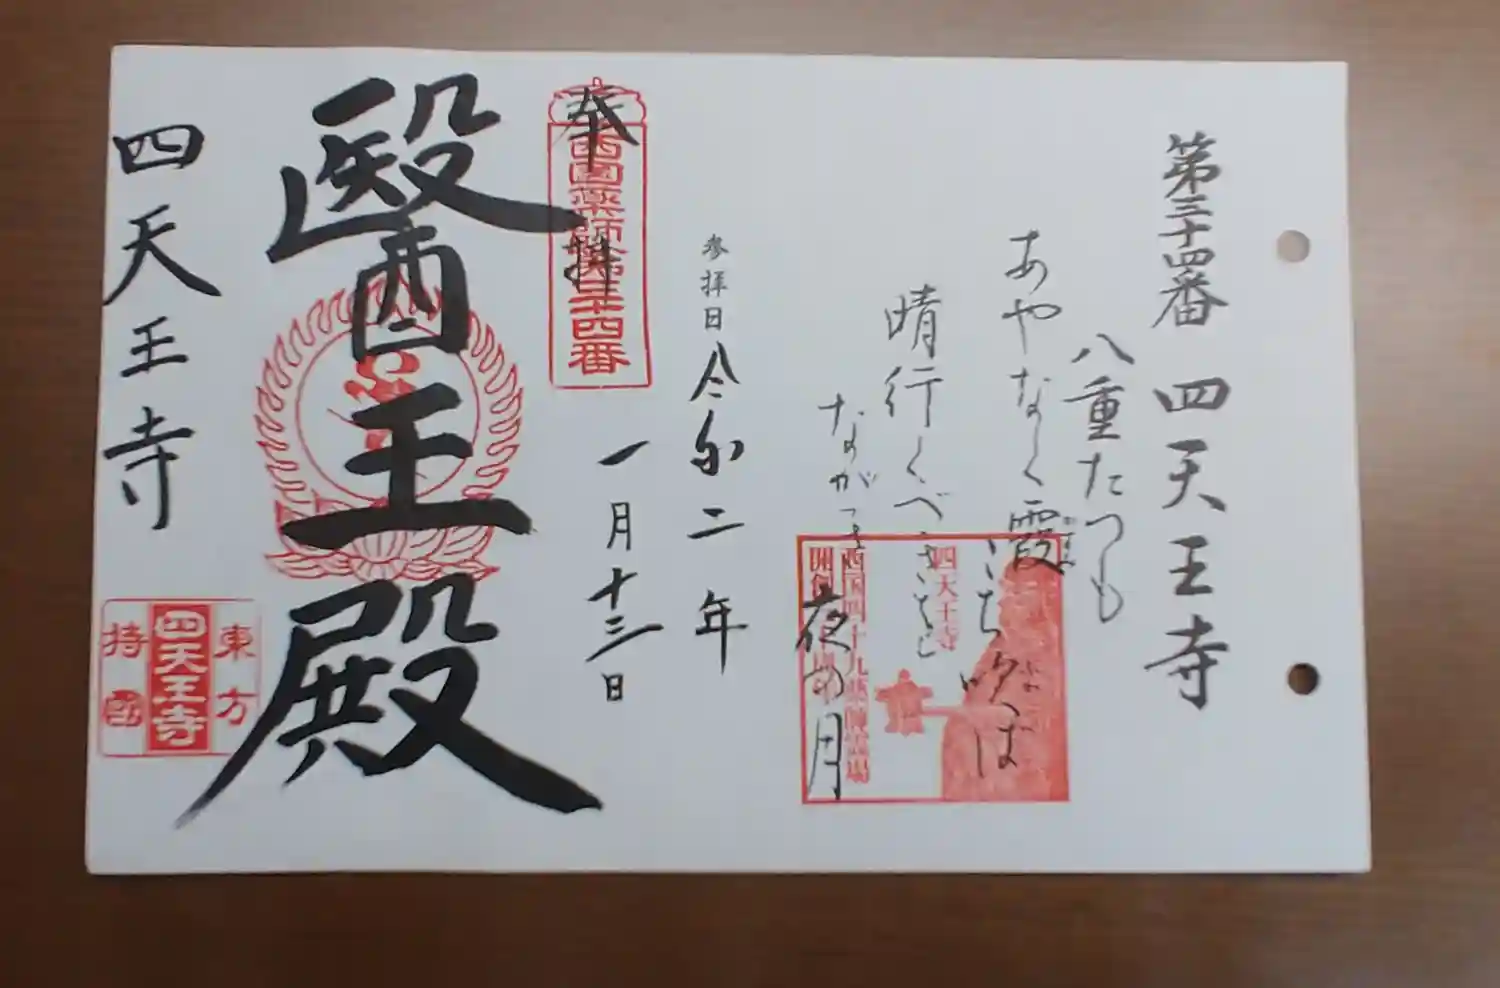 第三十四番 四天王寺
八重たつも
あやなく霞
かすみ
こち吹ば
ふか
晴行くべき
ながつき
夜の月
四天王寺
西国四十九薬師霊場
開創
参拝日 令和二年
一月十三日
奉拝
西國薬師第三十四番
醫王殿
四天王寺
東方
四天王寺
持國